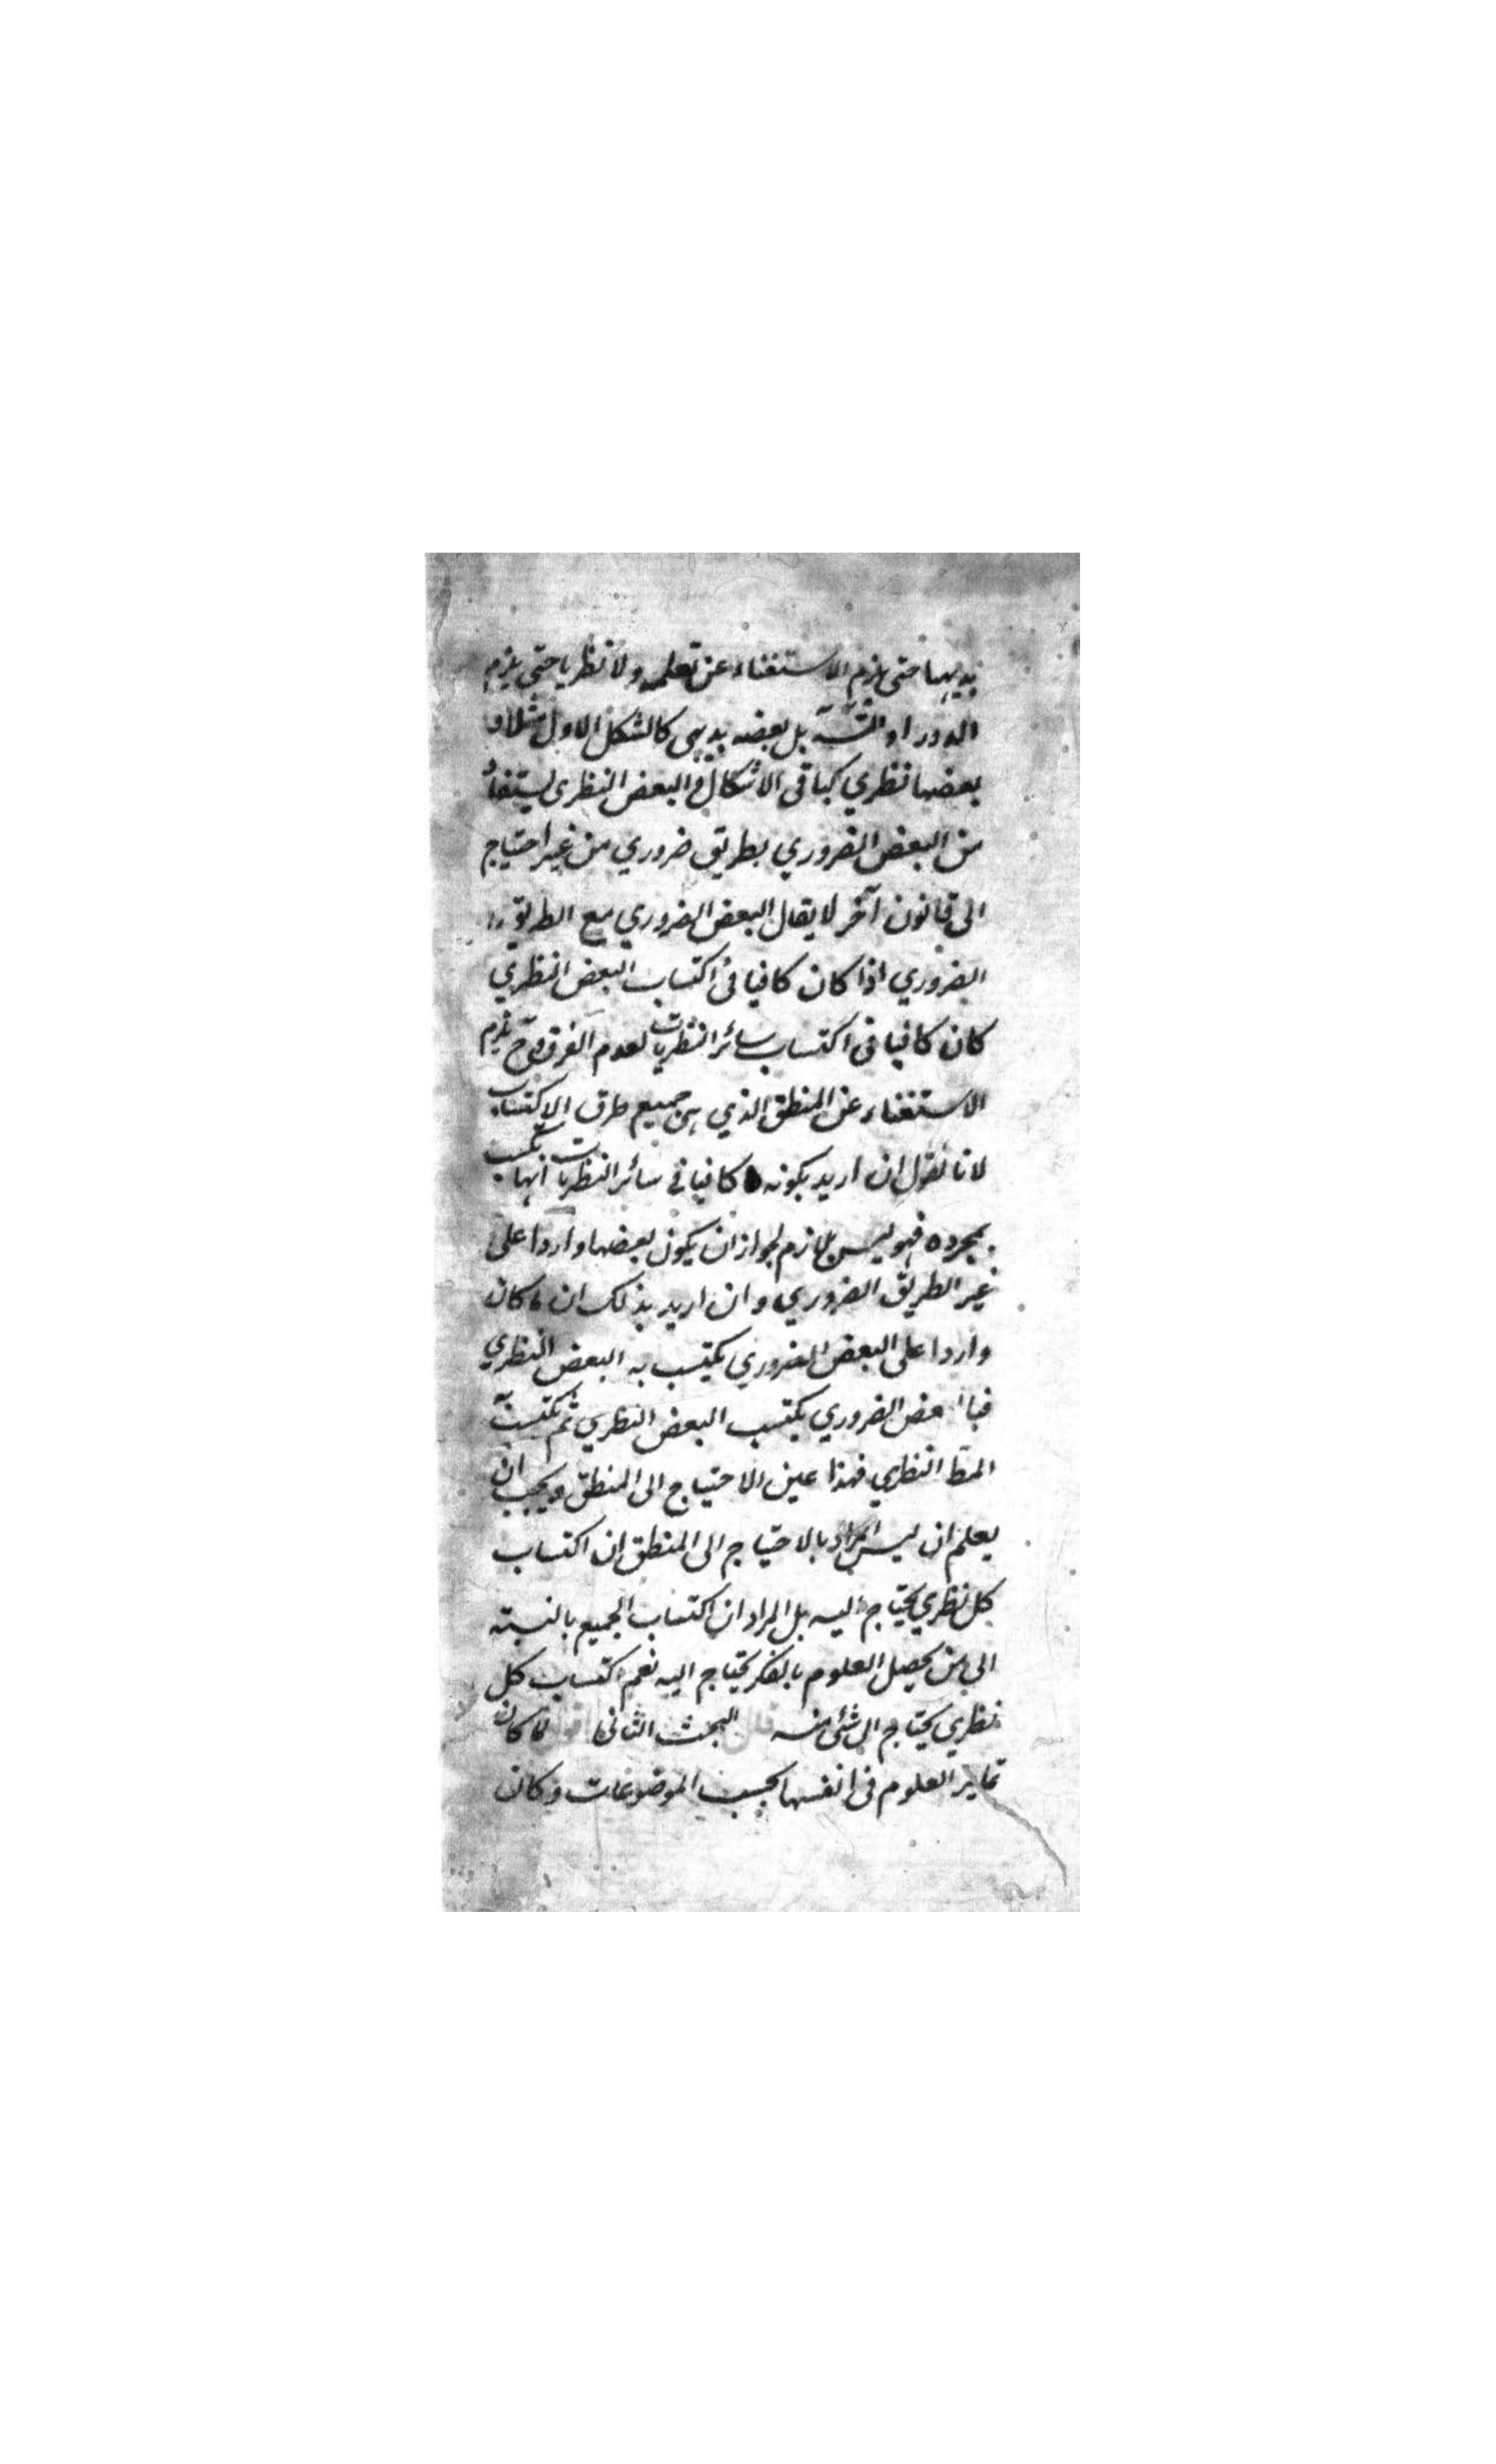 بديهيا حتى يلزم الاستغناء عن تعلمه ولا نظريا حتى يلزم
الدور او التسـ بل بعضه بديهى كالشكل الاول مثلا و
بعضها نظري كباقى الاشكال و البعض النظرى يستفاد
من البعض الضروري بطريق ضروري من غير احتياج
الى قانون آخر لا يقال البعض الضروري مع الطريق
الضروري اذا كان كافيا فى اكتساب البعض النظري
كان كافيا فى اكتساب سائر النظريات لعدم الفرق وح يلزم
الاستغناء عن المنطق الذي هى جميع طرق الاكتساب
لانا نقول ان اريد بكونه كافيا فى سائر النظريات انها تكتسب
بمجرده فهو ليس بلازم لجواز ان يكون بعضها واردا على
غير الطريق الضروري و ان اريد بذلك ان ما كان
واردا على البعض الضروري يكتسب به البعض النظري
الضروري يكتسب البعض النظري ثم
المط النظري فهذا عين الاحتياج الى المنطق ويجب ان
يعلم ان ليس المراد بالاحتياج الى المنطق ان اكتساب
كل نظري يحتاج اليه بل المراد ان اكتساب الجميع بالنسبته
الى من يحصل العلوم بالفكر يحتاج اليه نعم اكتساب كل
نظري يحتاج الى شئ منه قال البحث الثانى اقول لما كان
تمايز العلوم فى انفسها بحسب الموضوعات وكان